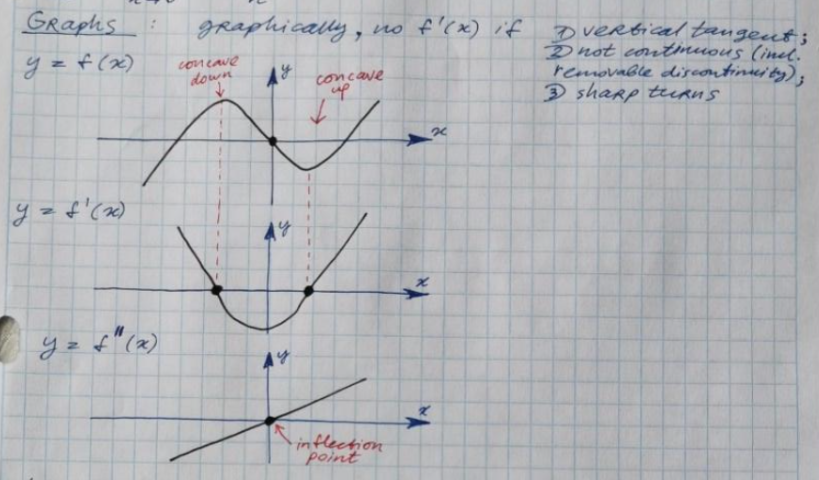 Graphs : graphically, no f'(x) if 1) vertical tangent;
2) not continuous (incl.
removable discontinuity);
3) sharp turns
y = f(x)
concave
down
y
concave
up
x
y = f'(x)
y
x
y = f"(x)
y
x
inflection
point